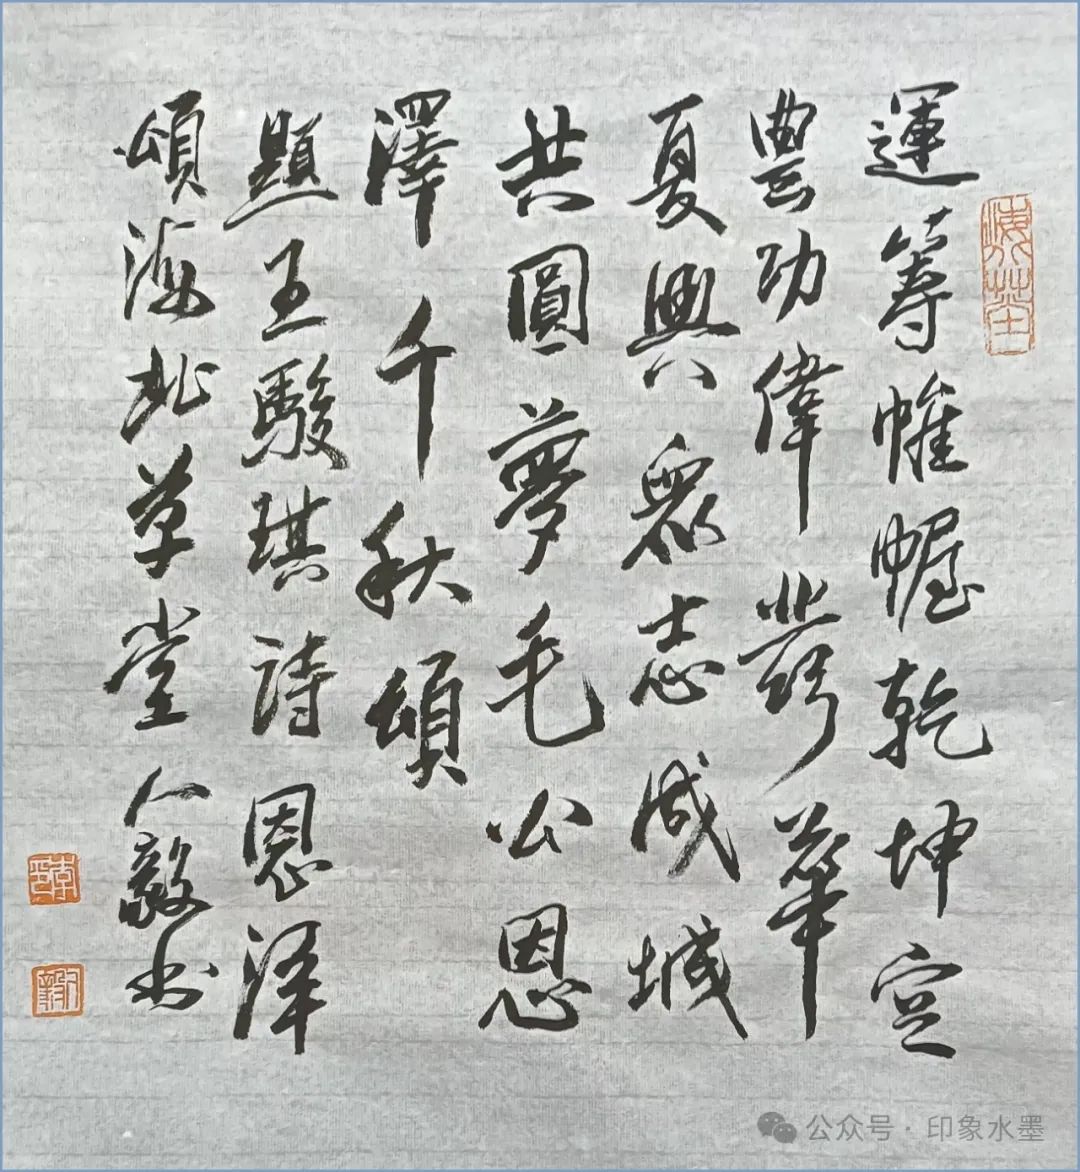 運籌帷幄乾坤定
豐功偉業勞華
夏興眾志成城
共圓夢毛公恩
澤千秋頌
題王駿琪詩恩泽
頌海北草堂人毅书
公众号 · 印象水墨